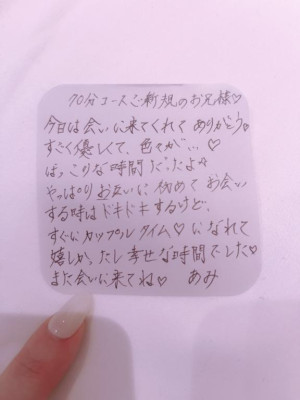 70分コースご新規のお兄様♡
今日は会いに来てくれてありがとう♡
すごく優しくて、色々がい♡
ぱっこりな時間だったよ☆
やっぱりお互いに初めてお会い
する時はドキドキするけど、
すぐにカップルタイム♡になれて
嬉しかったし幸せな時間でした♡
また会いに来てね♡ あみ